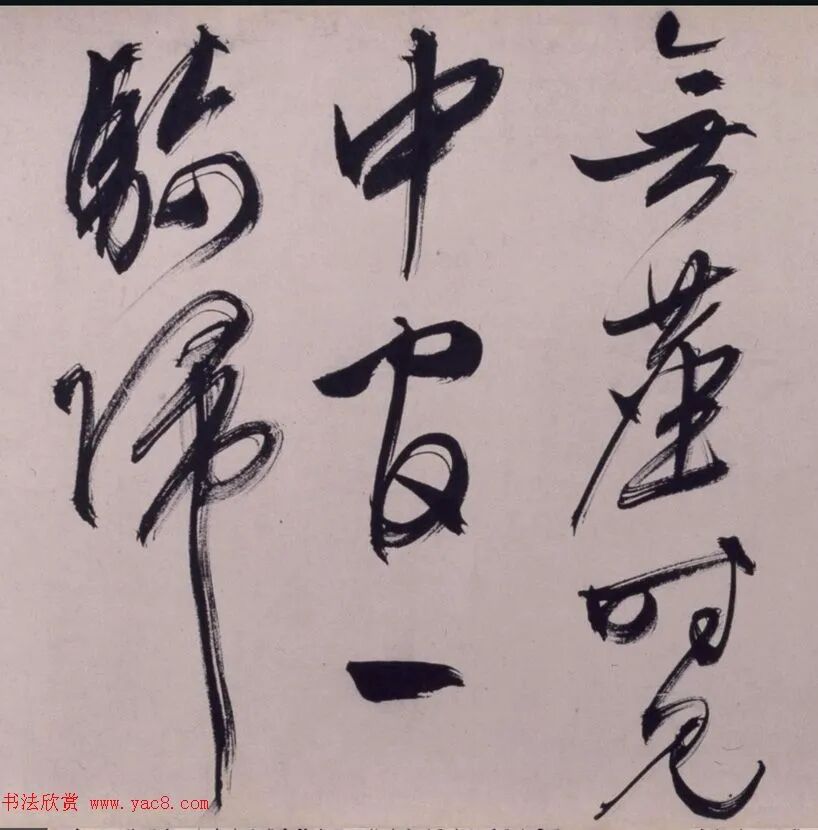 無塵時見
中官一
騎歸
书法欣赏 www.yac8.com